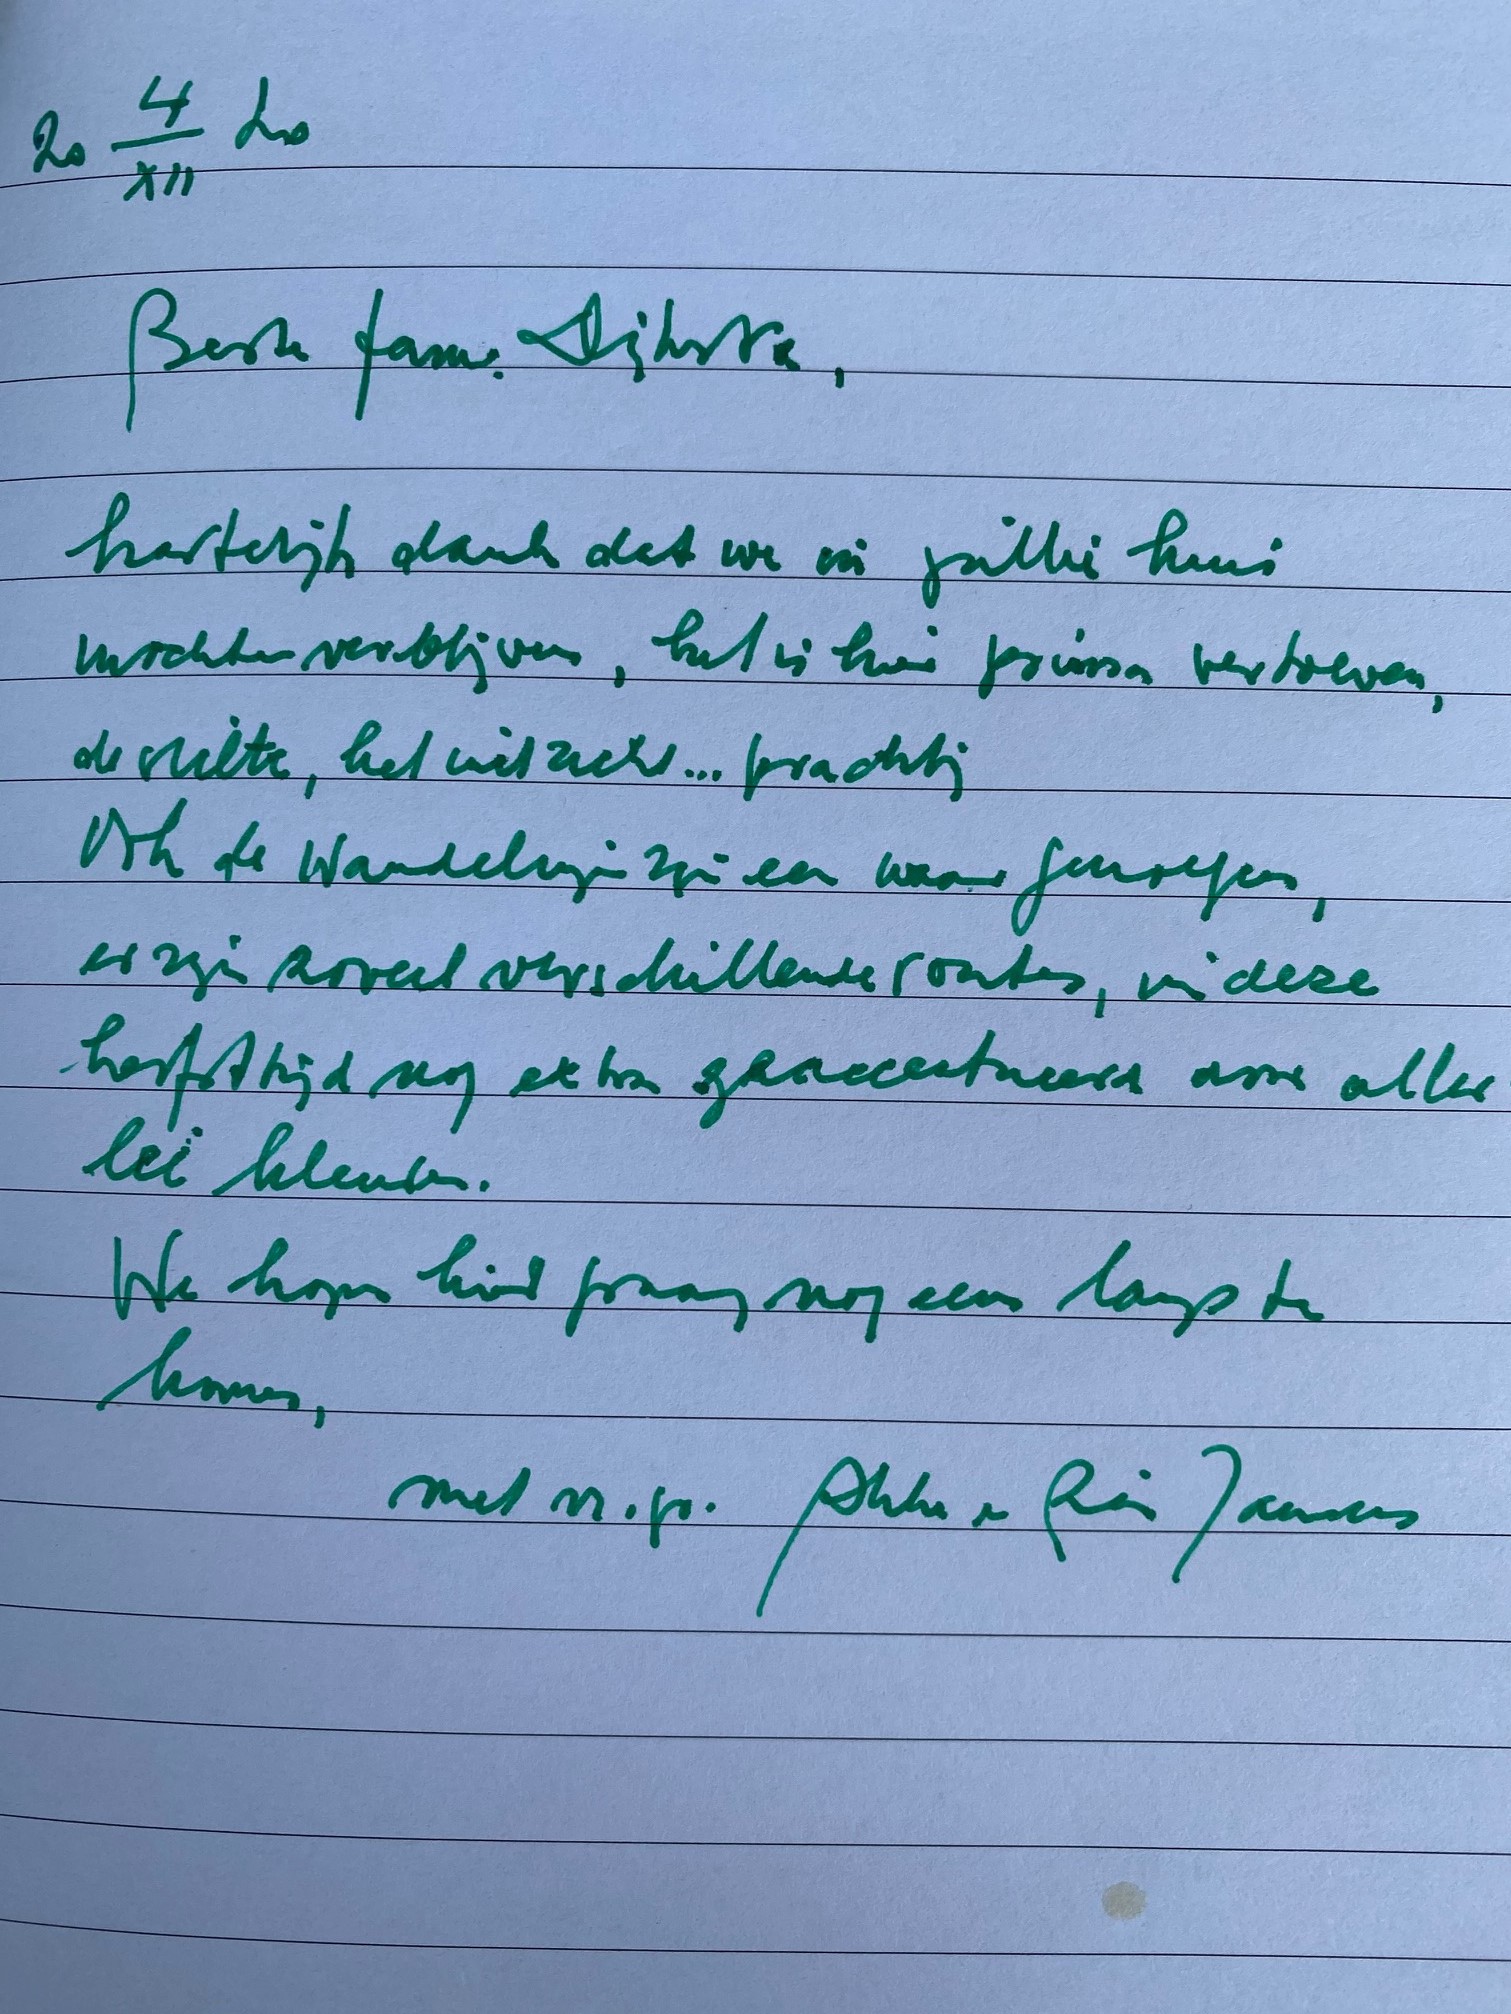 20 4/XII 20
Beste fam. Dijkstra,
hartelijk dank dat we in jullie huis
mochten verblijven, het is hier prima vertoeven,
de stilte, het uitzicht... prachtig
Ook de wandelingen zijn een waar genoegen,
er zijn zoveel verschillende routes, in deze
herfsttijd nog extra geaccentueerd door aller
lei kleuren.
We hopen hier graag nog eens langs te
komen,
met vr. gr. Akke en Rin Jansens